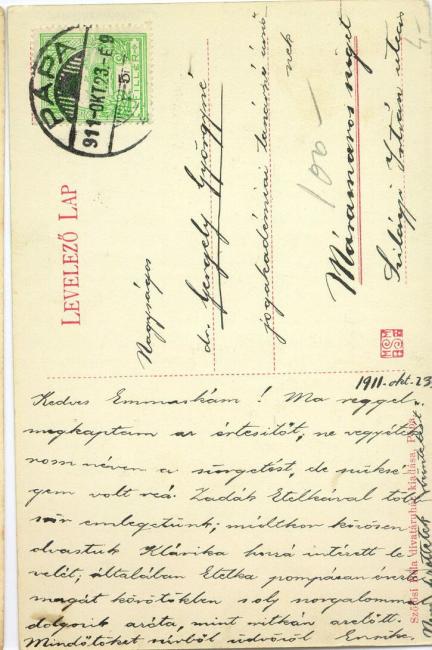 PÁPA
911-OKT.23-E9
FILLÉR
LEVELEZŐ LAP
Nagyságos
dr. Gergely Györgyné
jogakadémiai tanárné úrnő-
nek
100 —
Máramarossziget
Szilágyi István utca
1911. okt. 23.
Kedves Emmuskám! Ma reggel
megkaptam az értesítőt, ne vegyétek
rossz néven a sürgetést, de szüksé-
gem volt reá. Zadák Etelkával több-
ször emlegetünk; múltkor közösen
olvastuk Klárika hozzá intézett le-
velét; általában Etelka pompásan érzi
magát körötökben s oly szorgalommal
dolgozik azóta, mint ritkán azelőtt.
Mindőtöket szívből üdvözöl Enrike.
divatárúház kiadása, Pápa